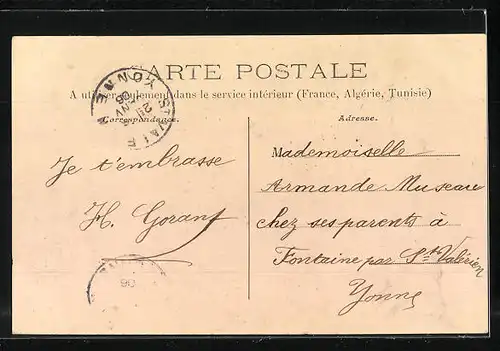 CARTE POSTALE
A utiliser seulement dans le service intérieur (France, Algérie, Tunisie)
Correspondance.
Adresse.
YONNE
Je t'embrasse
H. Gorant
Mademoiselle
Armande Museau
chez ses parents à
Fontaine par St Valérien
Yonne
06